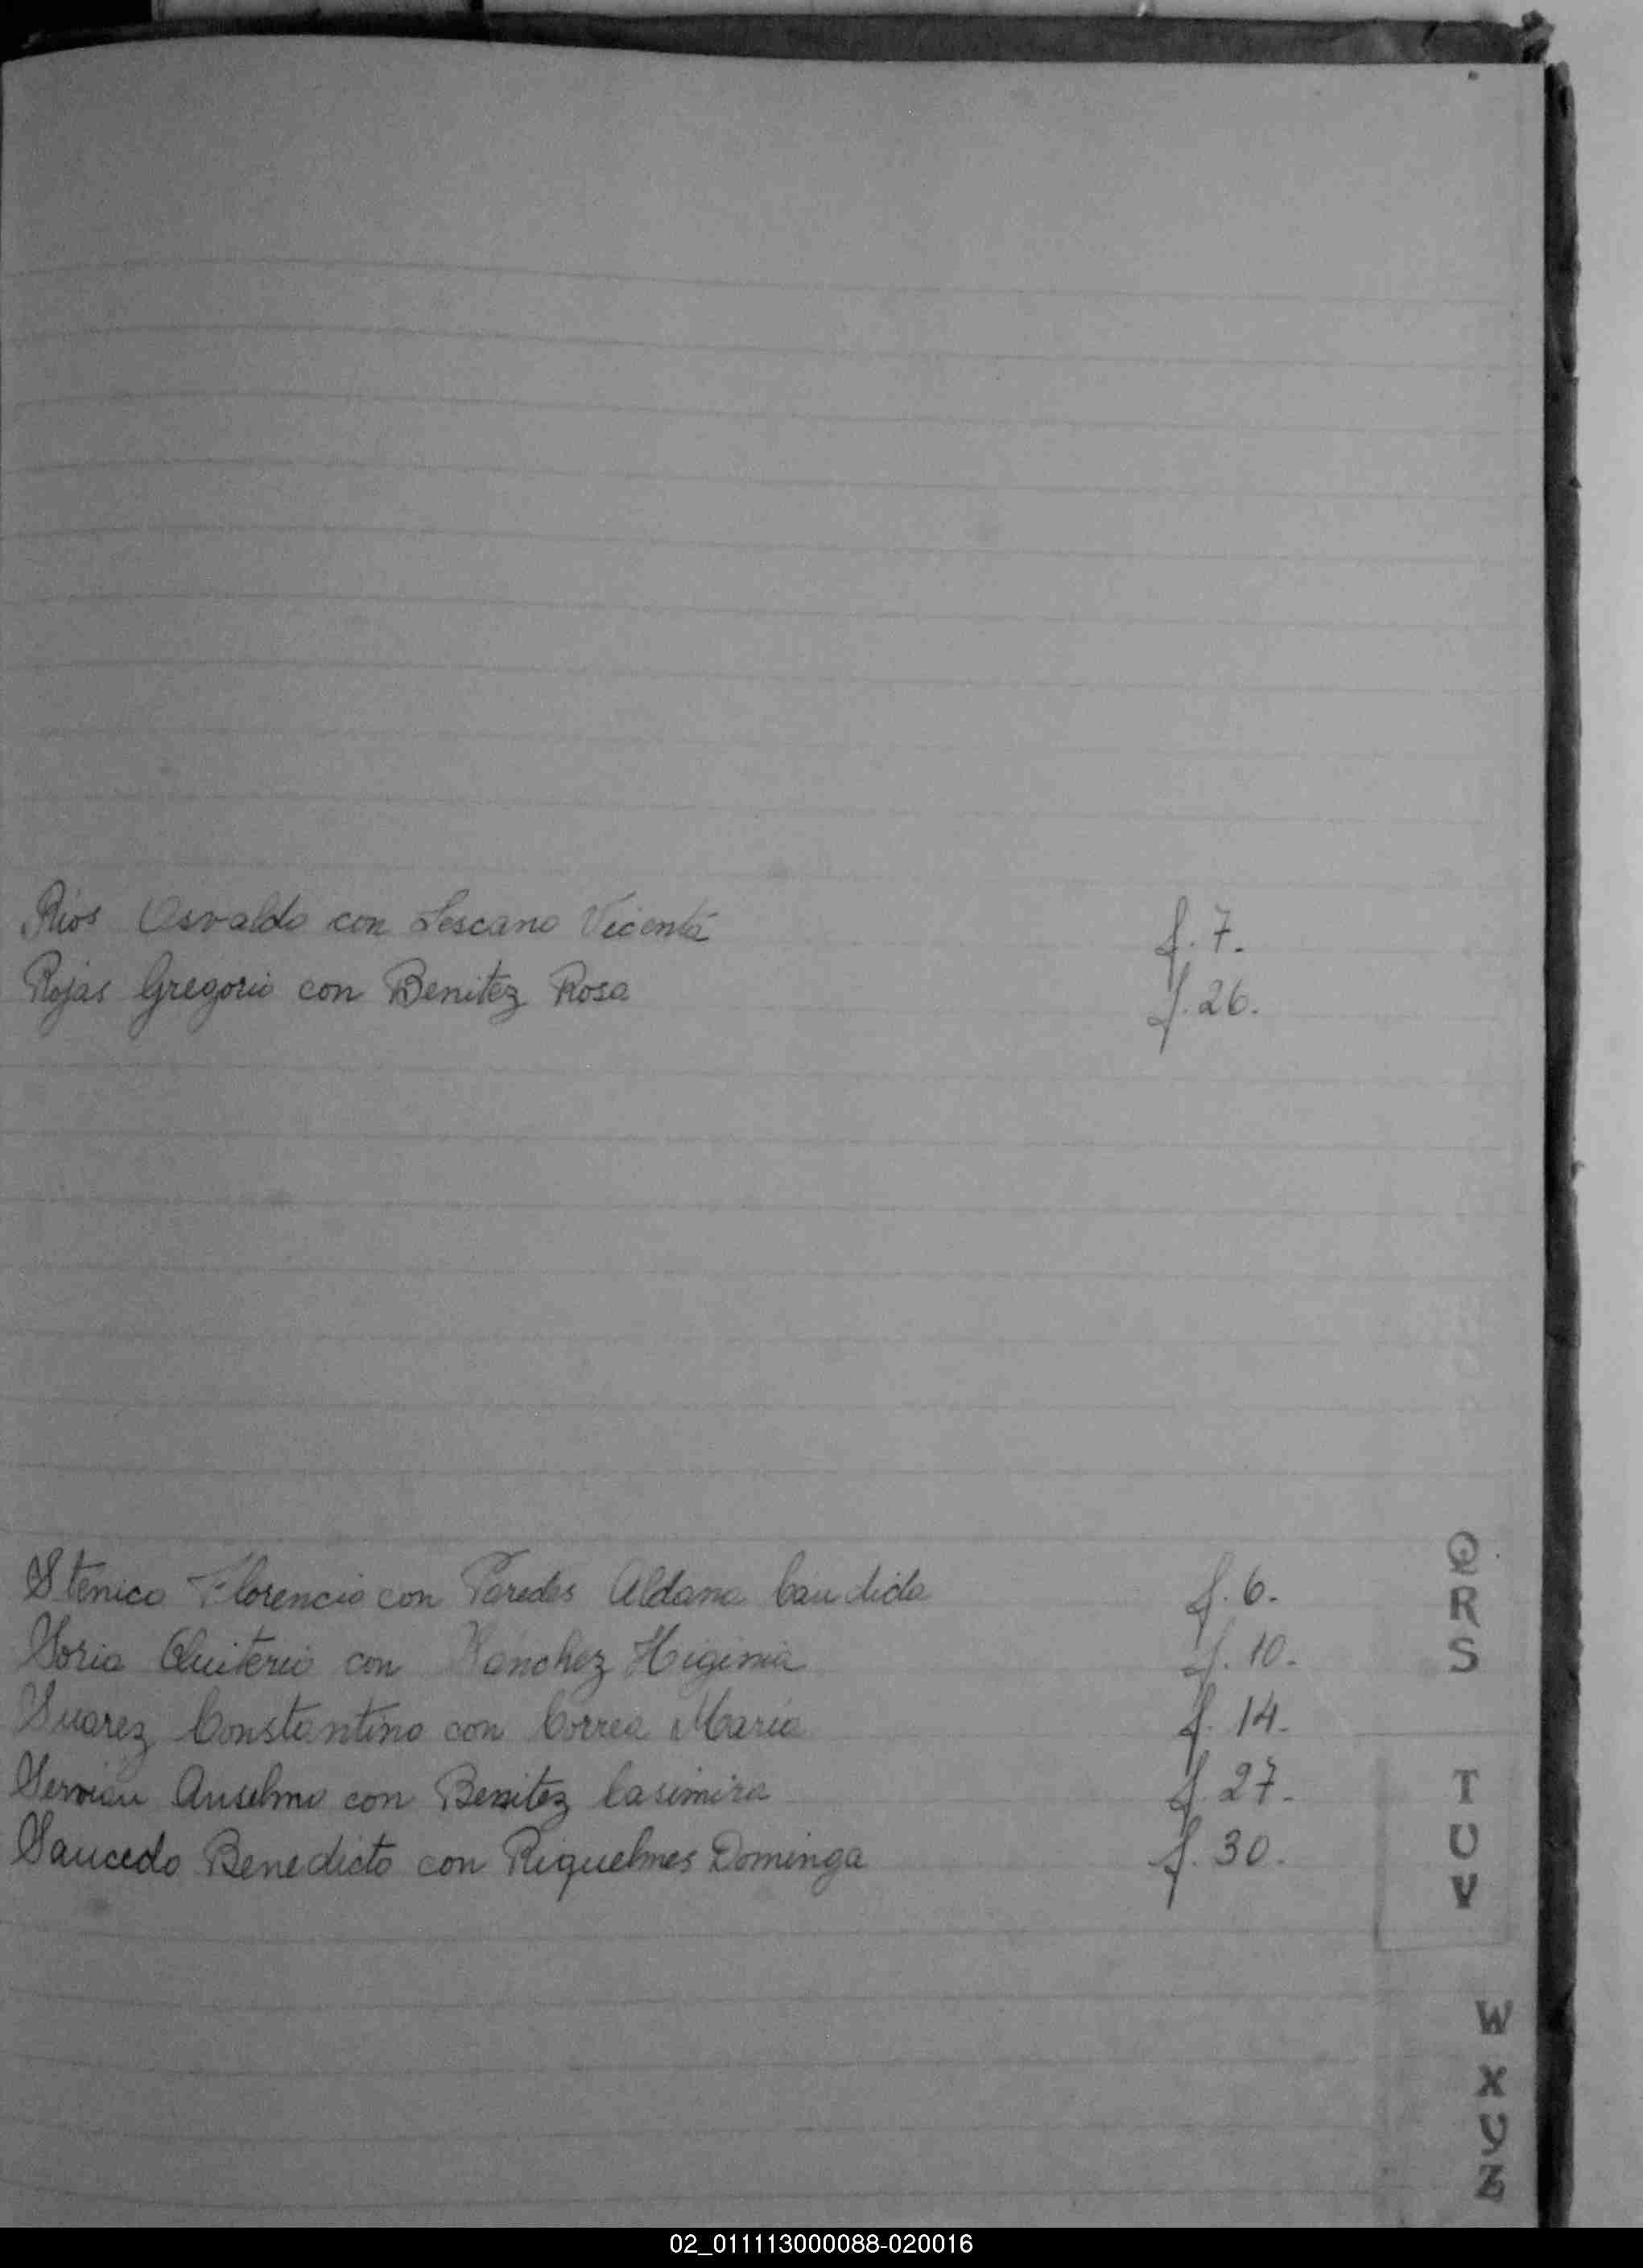 Rios Osvaldo con Lescano Vicenta f. 7.
Rojas Gregorio con Benitez Rosa f. 26.
Stenico Florencio con Paredes Aldana Candida f. 6.
Soria Quiterio con Sanchez Higinia f. 10.
Suarez Constantino con Correa Maria f. 14.
Servian Anselmo con Benitez Casimira f. 27.
Saucedo Benedicto con Riquelmes Dominga f. 30.
Q
R
S
T
U
V
W
X
Y
Z
02_011113000088-020016